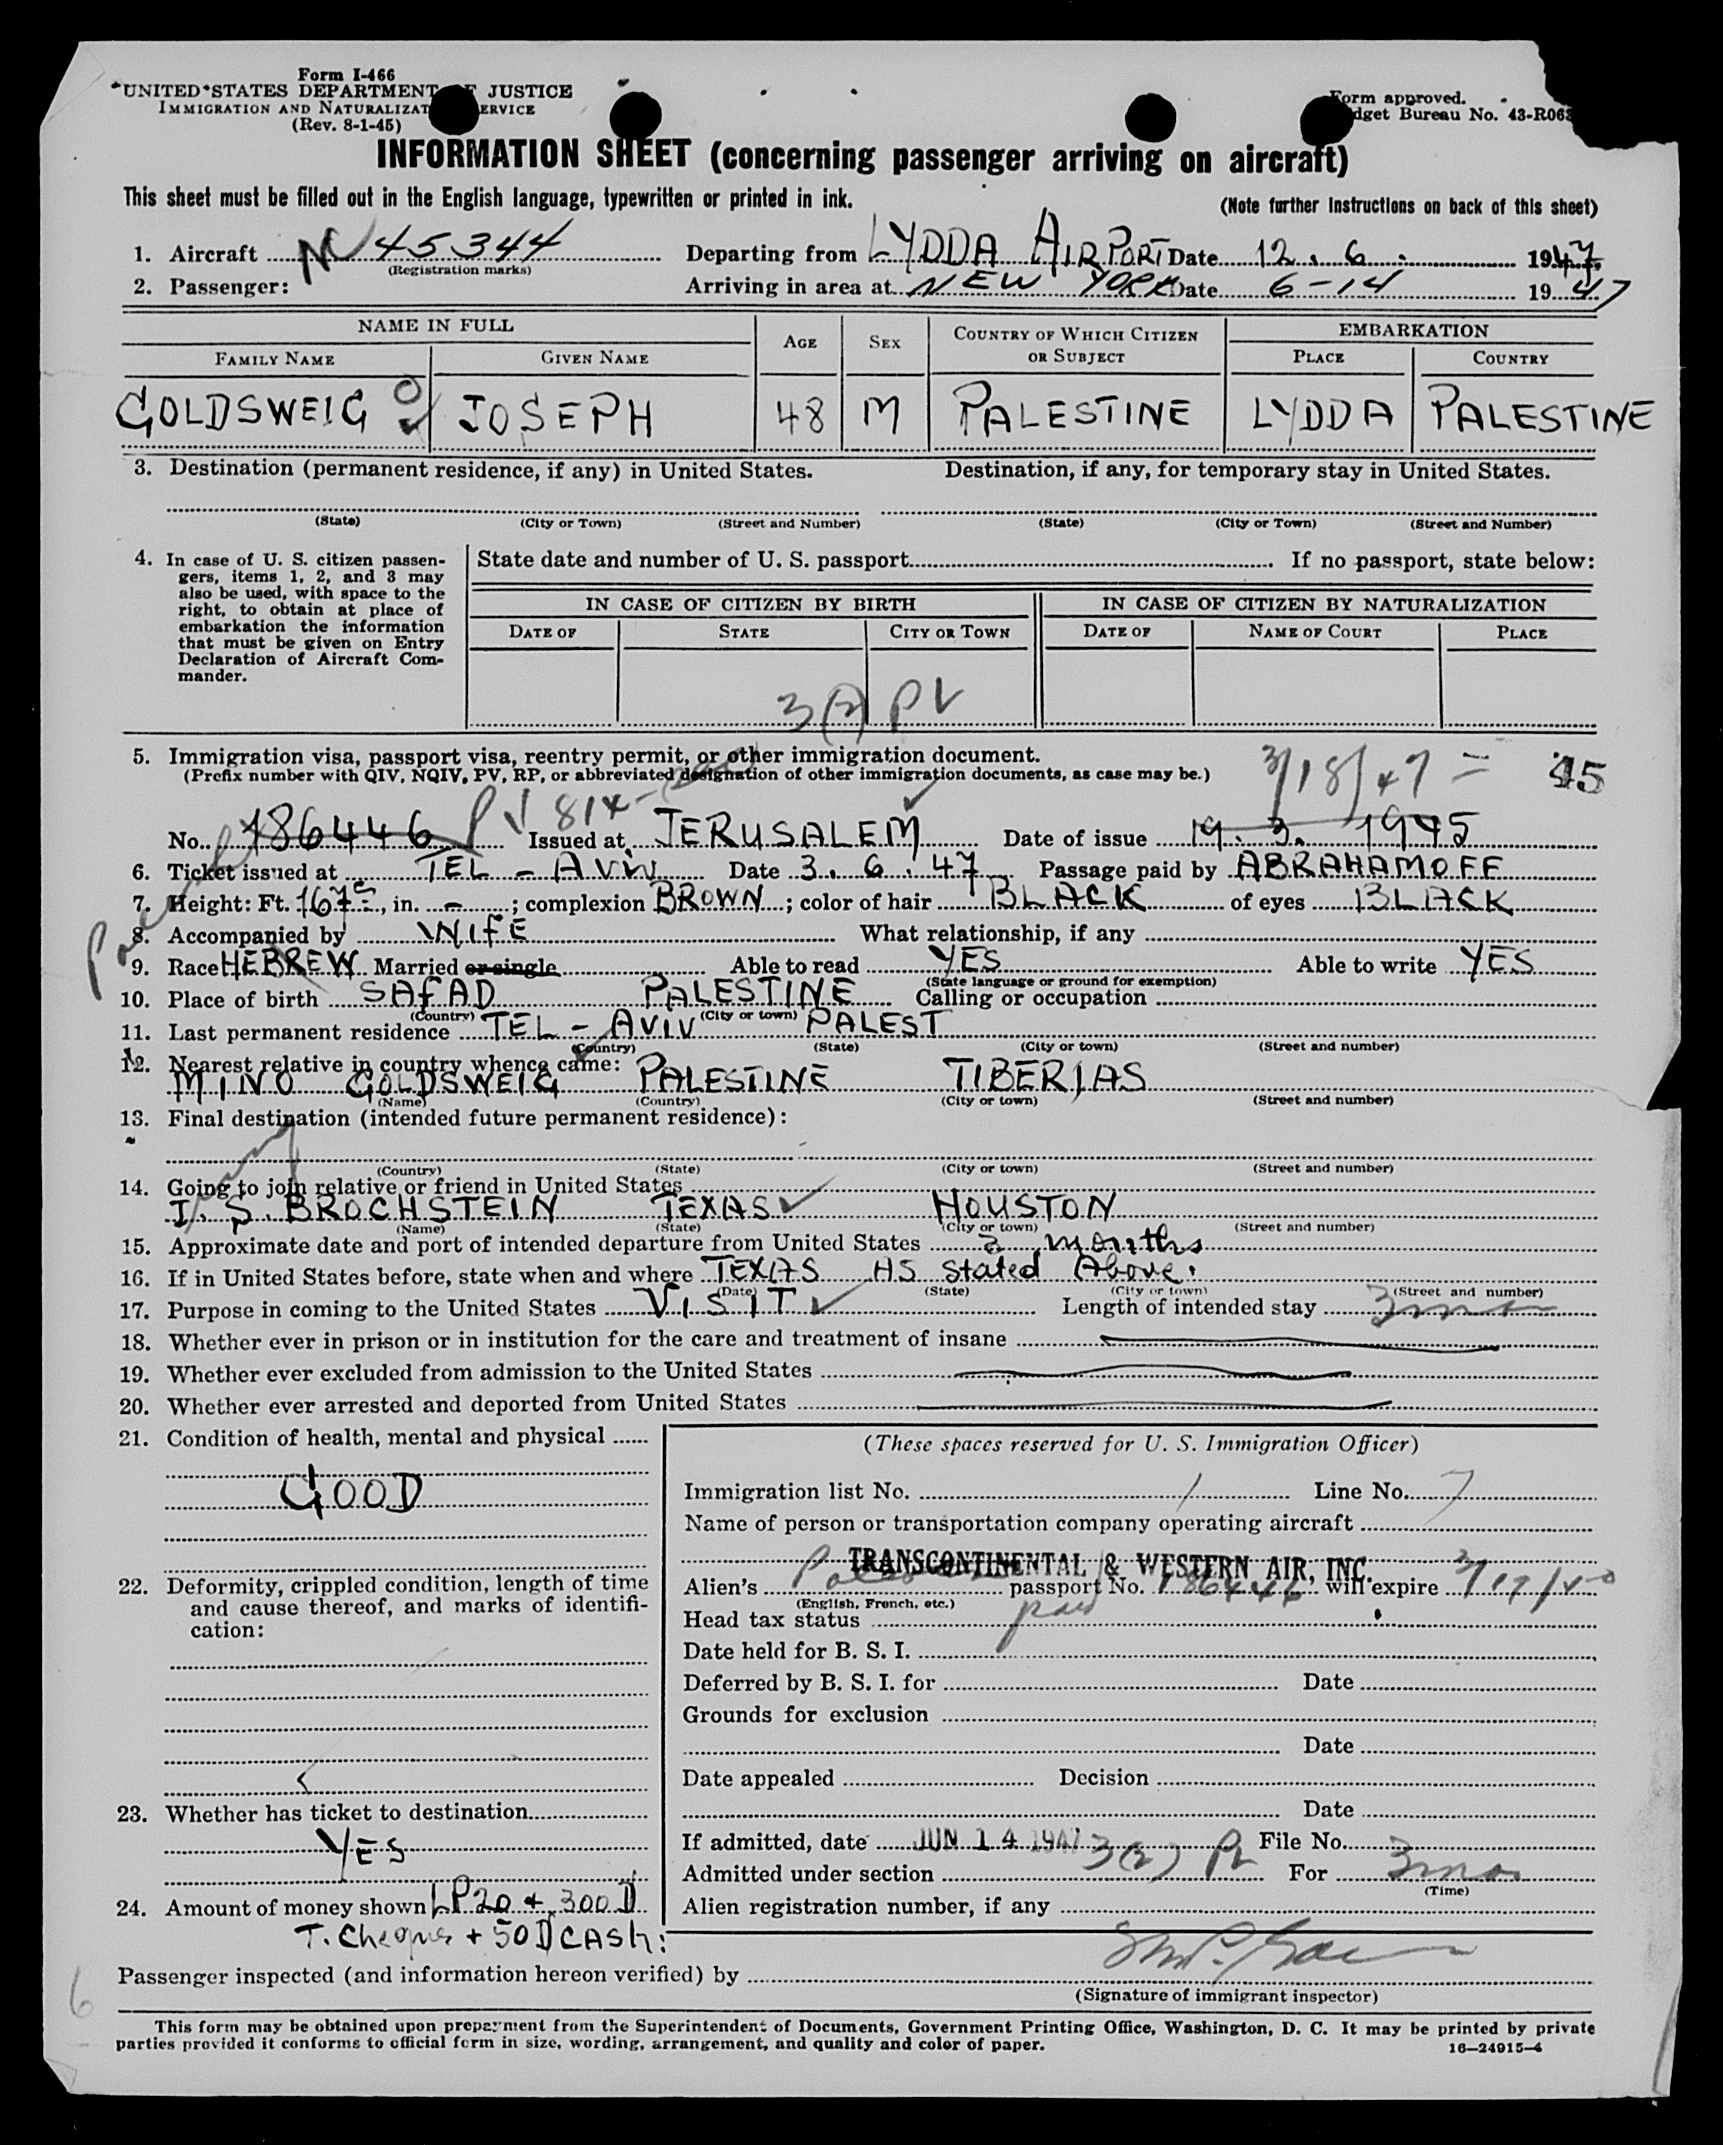 Form I-466
UNITED STATES DEPARTMENT OF JUSTICE
IMMIGRATION AND NATURALIZATION SERVICE
(Rev. 8-1-45)
Form approved.
Budget Bureau No. 43-R063
INFORMATION SHEET (concerning passenger arriving on aircraft)
This sheet must be filled out in the English language, typewritten or printed in ink.
(Note further instructions on back of this sheet)
1. Aircraft NC 45344 Departing from LYDDA AIRPORT Date 12. 6. 1947
(Registration marks)
2. Passenger: Arriving in area at NEW YORK Date 6-14 1947
NAME IN FULL AGE SEX COUNTRY OF WHICH CITIZEN OR SUBJECT EMBARKATION
FAMILY NAME GIVEN NAME PLACE COUNTRY
GOLDSWEIG JOSEPH 48 M PALESTINE LYDDA PALESTINE
3. Destination (permanent residence, if any) in United States. Destination, if any, for temporary stay in United States.
(State) (City or Town) (Street and Number) (State) (City or Town) (Street and Number)
4. In case of U. S. citizen passengers, items 1, 2, and 3 may also be used, with space to the right, to obtain at place of embarkation the information that must be given on Entry Declaration of Aircraft Commander.
State date and number of U. S. passport If no passport, state below:
IN CASE OF CITIZEN BY BIRTH IN CASE OF CITIZEN BY NATURALIZATION
DATE OF STATE CITY OR TOWN DATE OF NAME OF COURT PLACE
3(2) PV
5. Immigration visa, passport visa, reentry permit, or other immigration document.
(Prefix number with QIV, NQIV, PV, RP, or abbreviated designation of other immigration documents, as case may be.)
3/18/47 = 45
PV 814
No. 186446 Issued at JERUSALEM Date of issue 19. 3. 1945
6. Ticket issued at TEL-AVIV Date 3. 6. 47 Passage paid by ABRAHAMOFF
7. Height: Ft. 167, in. - ; complexion BROWN ; color of hair BLACK of eyes BLACK
8. Accompanied by WIFE What relationship, if any
9. Race HEBREW Married or single Able to read YES Able to write YES
(State language or ground for exemption)
10. Place of birth SAFAD PALESTINE Calling or occupation
(Country) (City or town)
11. Last permanent residence TEL-AVIV PALEST
(Country) (State) (City or town) (Street and number)
12. Nearest relative in country whence came:
MINO GOLDSWEIG PALESTINE TIBERIAS
(Name) (Country) (City or town) (Street and number)
13. Final destination (intended future permanent residence):
(Country) (State) (City or town) (Street and number)
14. Going to join relative or friend in United States
I. S. BROCHSTEIN TEXAS HOUSTON
(Name) (State) (City or town) (Street and number)
15. Approximate date and port of intended departure from United States 3 months
16. If in United States before, state when and where TEXAS AS stated Above.
(Date) (State) (City or town) (Street and number)
17. Purpose in coming to the United States VISIT Length of intended stay 3 mos
18. Whether ever in prison or in institution for the care and treatment of insane
19. Whether ever excluded from admission to the United States
20. Whether ever arrested and deported from United States
21. Condition of health, mental and physical
GOOD
22. Deformity, crippled condition, length of time and cause thereof, and marks of identification:
23. Whether has ticket to destination
YES
24. Amount of money shown LP20 + 300 D
T. Cheques + 50 D CASH:
(These spaces reserved for U. S. Immigration Officer)
Immigration list No. 1 Line No. 7
Name of person or transportation company operating aircraft
TRANSCONTINENTAL & WESTERN AIR, INC.
Alien's passport No. 186446 will expire 3/17/50
(English, French, etc.)
Head tax status paid
Date held for B. S. I.
Deferred by B. S. I. for Date
Grounds for exclusion
Date
Date appealed Decision
Date
If admitted, date JUN 14 1947 File No.
Admitted under section 3(2) PV For 3 mos
(Time)
Alien registration number, if any
Passenger inspected (and information hereon verified) by
(Signature of immigrant inspector)
6
This form may be obtained upon prepayment from the Superintendent of Documents, Government Printing Office, Washington, D. C. It may be printed by private
parties provided it conforms to official form in size, wording, arrangement, and quality and color of paper.
16—24915-4